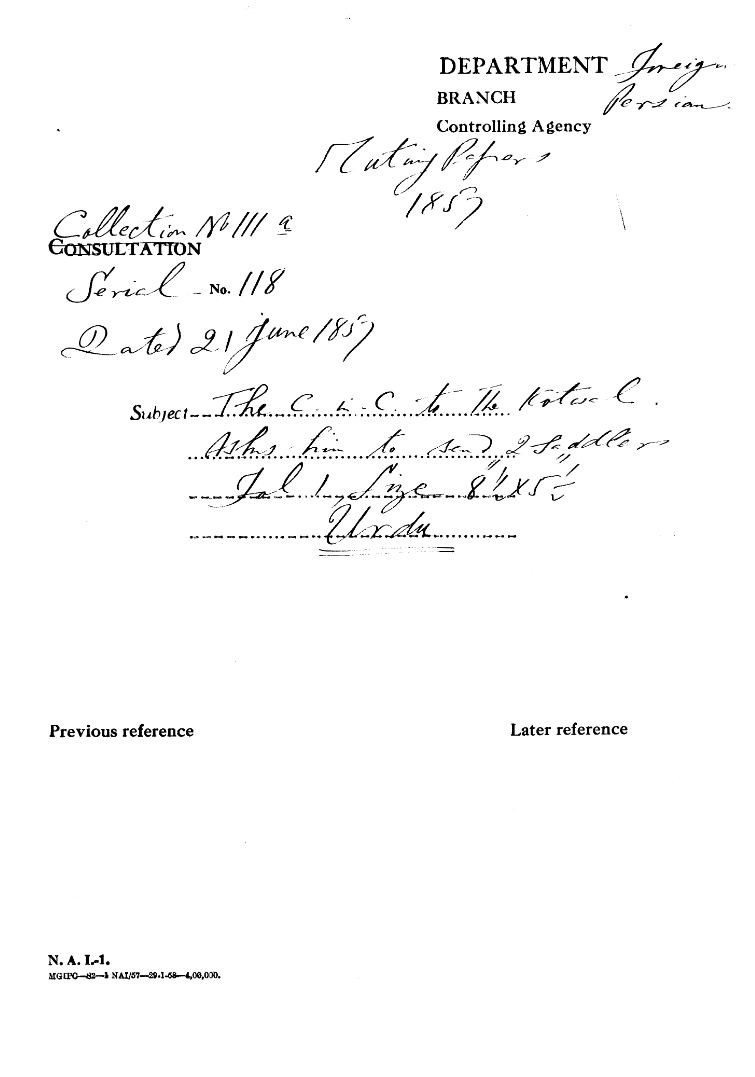 DEPARTMENT Foreign
BRANCH Persian
Controlling Agency
Mutiny Papers
1857
Collection No 111 a
CONSULTATION
Serial - No. 118
Dated 21 June 1857
Subject - The C-in-C to The Kotwal.
Asks him to send 2 Saddlers
Fol 1, Size 8½" x 5½"
Urdu
Previous reference Later reference
N. A. I.-1.
MGIPC—82—1 NAI/57—29-1-58—4,00,000.